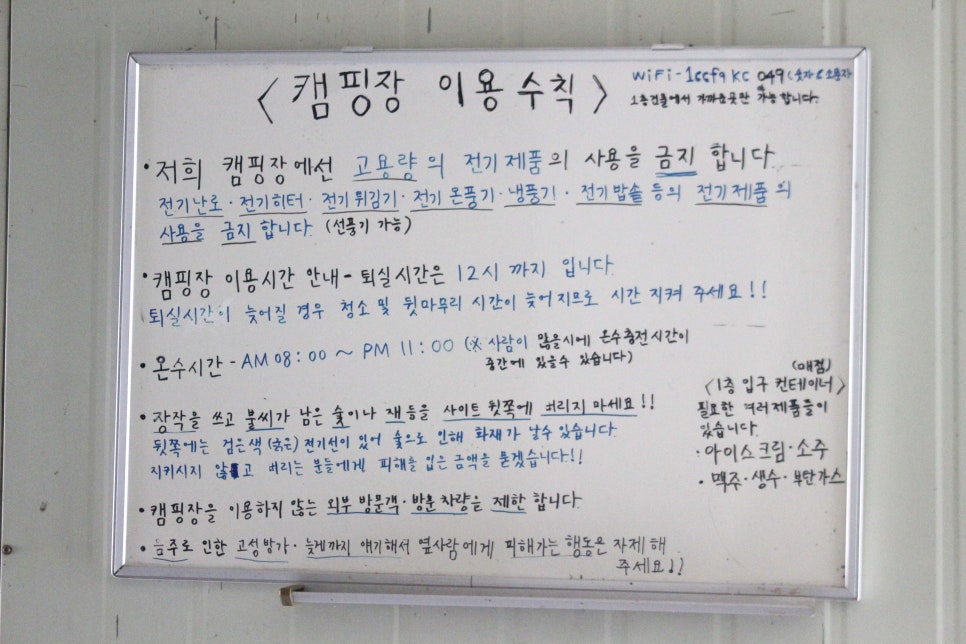 〈 캠핑장 이용수칙 〉
WiFi - 1ccf9kc 049 (숫자&소문자
1층건물에서 가까운곳만 가능합니다.
· 저희 캠핑장에선 고용량의 전기제품의 사용을 금지 합니다.
전기난로 · 전기히터 · 전기튀김기 · 전기온풍기 · 냉풍기 · 전기밥솥 등의 전기제품의
사용을 금지 합니다. (선풍기 가능)
· 캠핑장 이용시간 안내 - 퇴실시간은 12시 까지 입니다.
퇴실시간이 늦어질 경우 청소 및 뒷마무리 시간이 늦어지므로 시간 지켜 주세요!!
· 온수시간 - AM 08:00 ~ PM 11:00 (※ 사람이 많을시에 온수충전시간이
중간에 있을수 있습니다)
· 장작을 쓰고 불씨가 남은 숯이나 재등을 사이트 뒷쪽에 버리지 마세요!!
뒷쪽에는 검은색(굵은) 전기선이 있어 숯으로 인해 화재가 날수 있습니다.
지키시지 않고 버리는 분들에게 피해를 입은 금액을 묻겠습니다!!
· 캠핑장을 이용하지 않는 외부 방문객 · 방문차량을 제한 합니다.
· 음주로 인한 고성방가 · 늦게까지 얘기해서 옆사람에게 피해가는 행동은 자제해
주세요!!
(매점)
〈1층 입구 컨테이너〉
필요한 여러제품들이
있습니다.
· 아이스크림 · 소주
· 맥주 · 생수 · 부탄가스